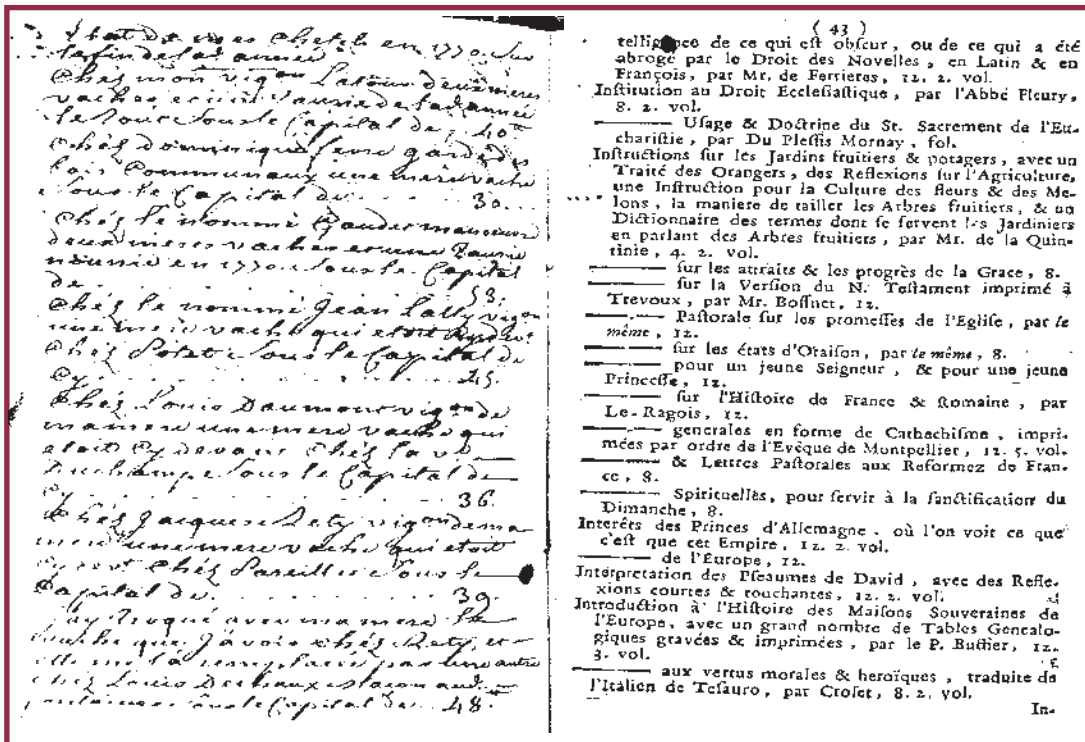 Etat de mes Chetels en 1770. Sur
la fin de lad. année
Chez mon vigon Latour deux meres
vaches et une Taurie de lad. année
le tout sous le Capital de, 40
chéz dominique garde des
bois Communaux une mere vache
sous le Capital de ... 30...
Chéz le nommé manoeuvre
deux meres vaches et une Taurie
nourrie en 1770. sous le Capital
de ... 53.
Chéz le nommé Jean Lally vigon
une mere vache qui etoit cy devt
Chéz Potet sous le Capital de
cy ... 45.
Chéz Louis Daumont vigon de
ma mere une mere vache qui
etoit cy devant Chéz la ve
Duchampt sous le Capital de
cy ... 36.
Chéz Jacques Rety vigon de ma
mere une mere vache qui etoit
cy devt Chéz Lareillier sous le
Capital de ... 39.
J'ay troqué avec ma mere la
vache que J'avois chéz Rety, et
elle me la remplacée par une autre
chéz Louis
sous le Capital de ... 48.
( 43 )
telligence de ce qui eſt obſcur, ou de ce qui a été
abrogé par le Droit des Novelles, en Latin & en
François, par Mr. de Ferrieres, 12. 2. vol.
Inſtitution au Droit Eccleſiaſtique, par l'Abbé Fleury,
8. 2. vol.
——— Uſage & Doctrine du St. Sacrement de l'Eu-
chariſtie, par Du Pleſſis Mornay, fol.
Inſtructions ſur les Jardins fruitiers & potagers, avec un
Traité des Orangers, des Reflexions ſur l'Agriculture,
une Inſtruction pour la Culture des fleurs & des Me-
lons, la maniere de tailler les Arbres fruitiers, & un
Dictionnaire des termes dont ſe ſervent les Jardiniers
en parlant des Arbres fruitiers, par Mr. de la Quin-
tinie, 4. 2. vol.
——— ſur les attraits & les progrès de la Grace, 8.
——— ſur la Verſion du N. Teſtament imprimé à
Trevoux, par Mr. Boſſuet, 12.
——— Paſtorale ſur les promeſſes de l'Egliſe, par le
même, 12.
——— ſur les états d'Oraiſon, par le même, 8.
——— pour un jeune Seigneur, & pour une jeune
Princeſſe, 12.
——— ſur l'Hiſtoire de France & Romaine, par
Le-Ragois, 12.
——— generales en forme de Cathechiſme, impri-
mées par ordre de l'Evêque de Montpellier, 12. 5. vol.
——— & Lettres Paſtorales aux Reformez de Fran-
ce, 8.
——— Spirituelles, pour ſervir à la ſanctification du
Dimanche, 8.
Interêts des Princes d'Allemagne, où l'on voit ce que
c'eſt que cet Empire, 12. 2. vol.
——— de l'Europe, 12.
Interpretation des Pſeaumes de David, avec des Refle-
xions courtes & touchantes, 12. 2. vol.
Introduction à l'Hiſtoire des Maiſons Souveraines de
l'Europe, avec un grand nombre de Tables Genealo-
giques gravées & imprimées, par le P. Buffier, 12.
3. vol.
——— aux vertus morales & heroïques, traduite de
l'Italien de Teſauro, par Croſet, 8. 2. vol.
In-